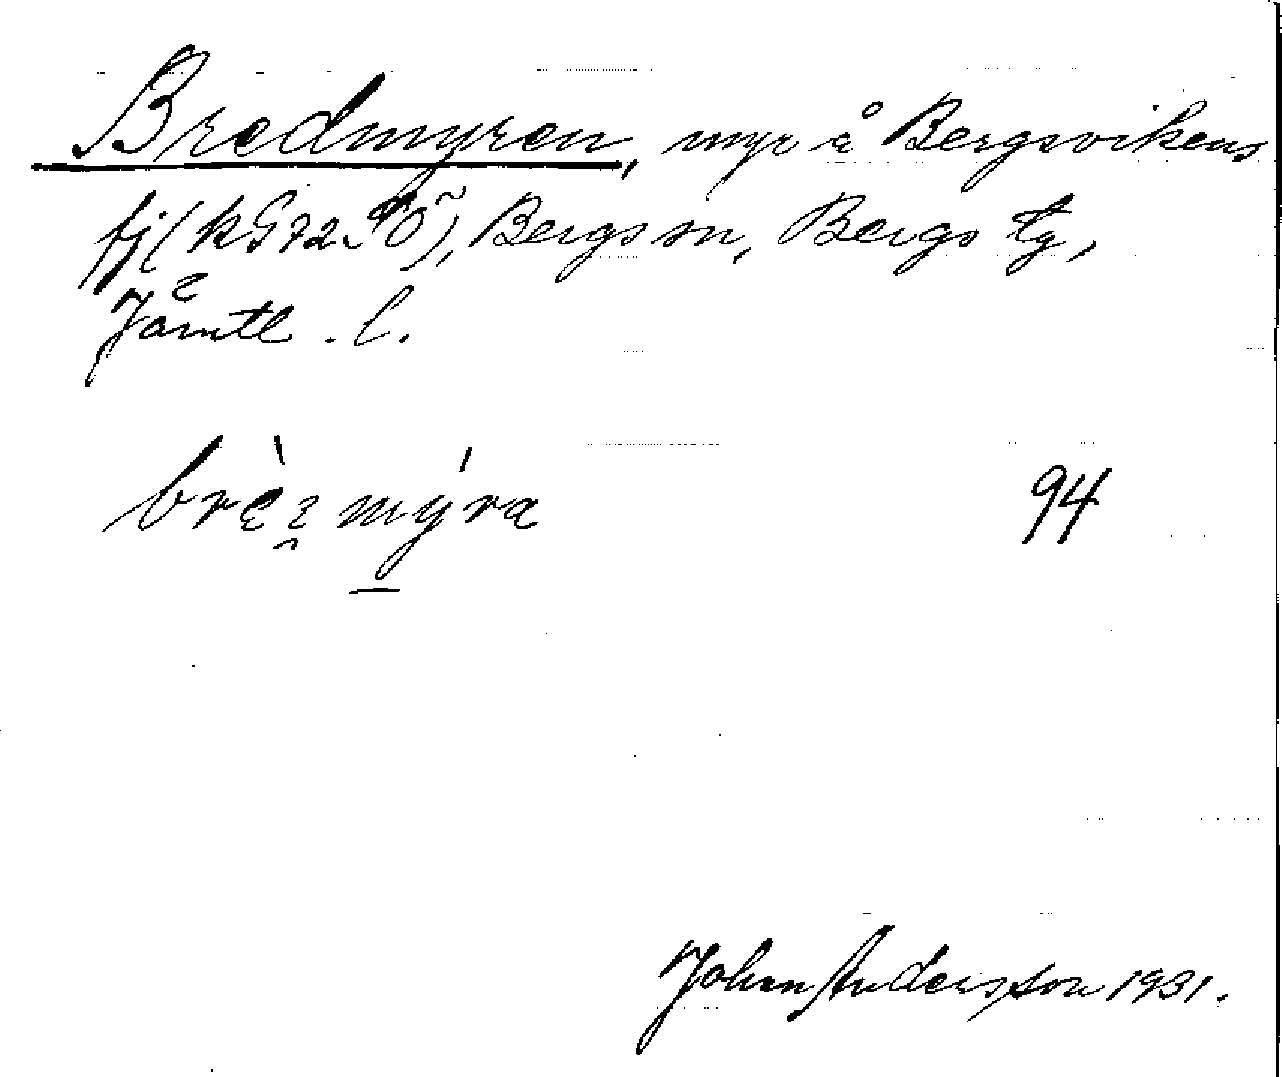 Bredmyren, myr å Bergsvikens
fj (k G72 SÖ), Bergs sn, Bergs tg,
Jämtl. l.
brèɛmýra 94
Johan Andersson 1931.